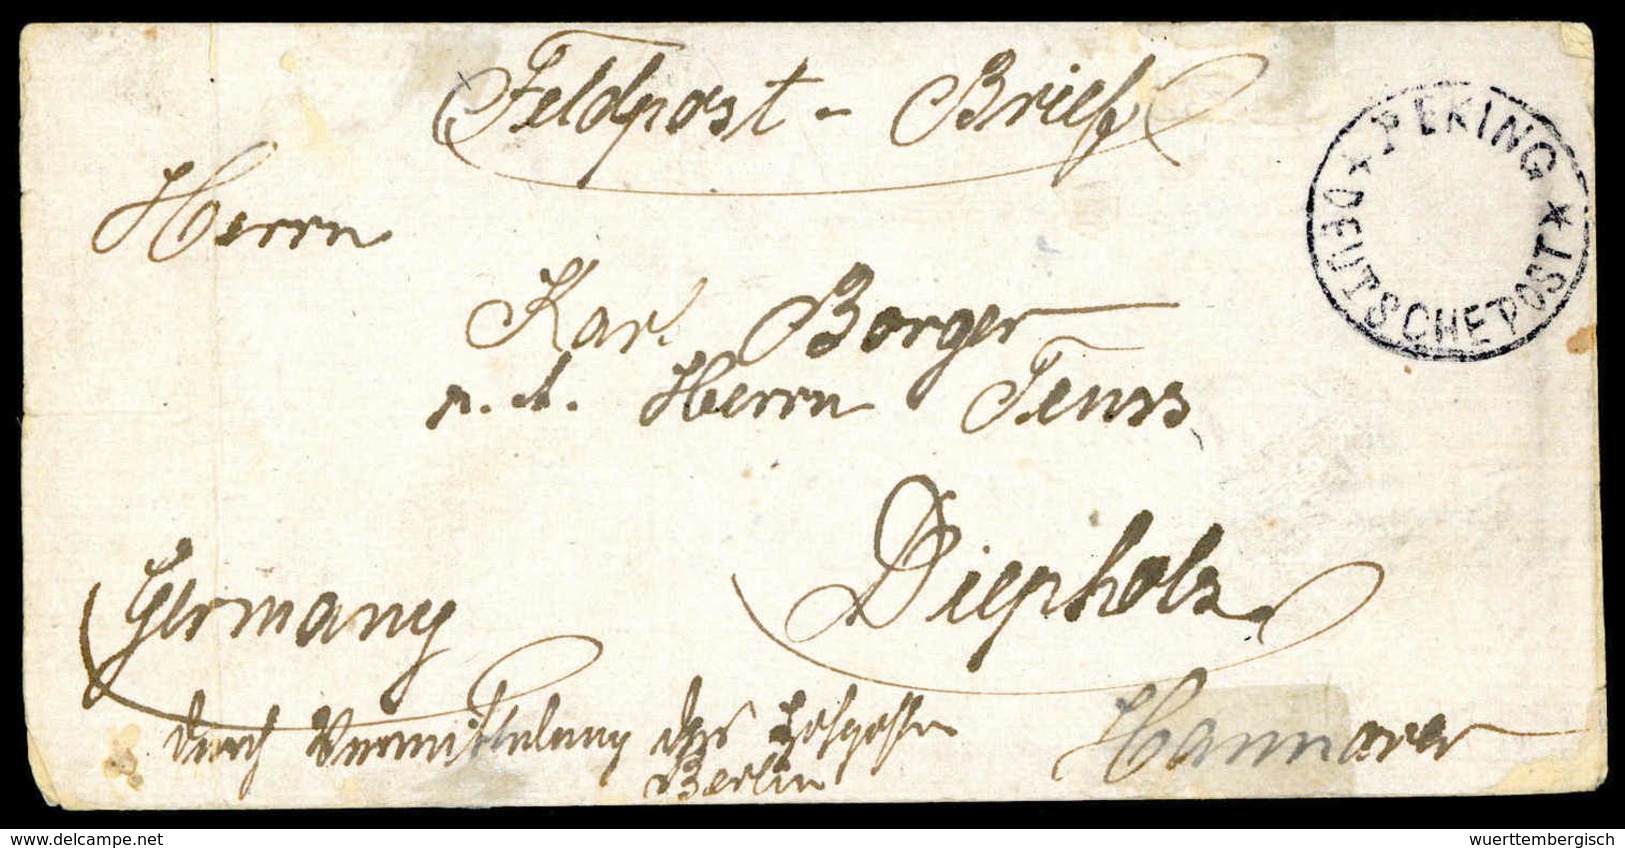 Feldpost - Brief
* PEKING *
DEUTSCHE POST
Herrn
Karl Borger
Herrn
Diepholz
Germany
Hannover
durch Vermittelung des Hofpostamts
Berlin
delcampe.net
wuerttembergisch